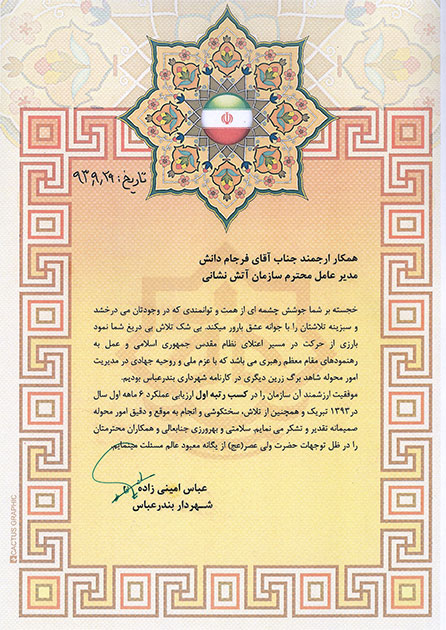 تاریخ: ۹۳,۹,۲۹
همکار ارجمند جناب آقای فرجام دانش
مدیر عامل محترم سازمان آتش نشانی
خجسته بر شما جوشش چشمه ای از همت و توانمندی که در وجودتان می درخشد
و سبزینه تلاشتان را با جوانه عشق بارور میکند. بی شک تلاش بی دریغ شما نمود
بارزی از حرکت در مسیر اعتلای نظام مقدس جمهوری اسلامی و عمل به
رهنمودهای مقام معظم رهبری می باشد که با عزم ملی و روحیه جهادی در مدیریت
امور محوله شاهد برگ زرین دیگری در کارنامه شهرداری بندرعباس بودیم.
موفقیت ارزشمند آن سازمان را در کسب رتبه اول ارزیابی عملکرد ۶ ماهه اول سال
۱۳۹۳ تبریک و همچنین از تلاش، سختکوشی و انجام به موقع و دقیق امور محوله
صمیمانه تقدیر و تشکر می نمایم. سلامتی و بهروزی جنابعالی و همکاران محترمتان
را در ظل توجهات حضرت ولی عصر(عج) از یگانه معبود عالم مسئلت مینمایم.
عباس امینی زاده
شهردار بندرعباس
CACTUS GRAPHIC